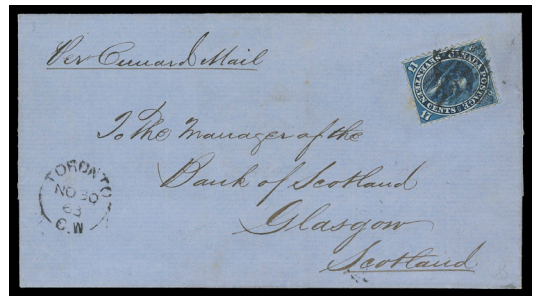 Per Cunard Mail
CANADA POSTAGE
SEVENTEEN CENTS
17
17
To The Manager of the
Bank of Scotland
Glasgow
Scotland
TORONTO
NO 30
63
C.W